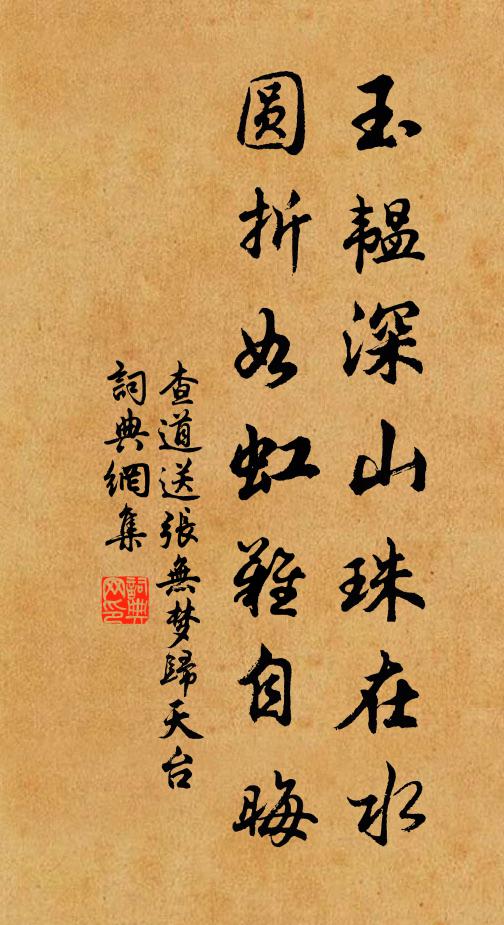 玉韫深山珠在水
圆折如虹难自晦
查道送張無梦歸天台
詞典網集
詞典
网印